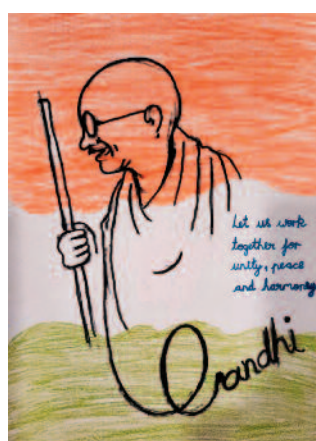 Let us work
together for
unity, peace
and harmoney
Gandhi